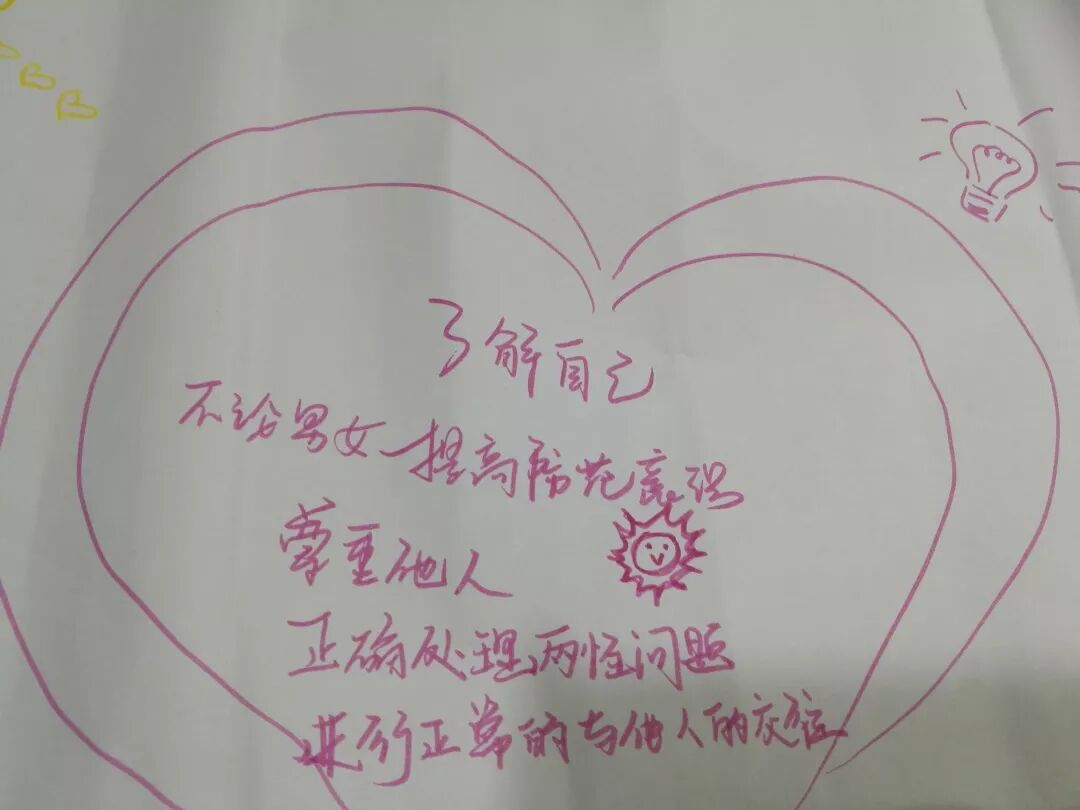 了解自己
不论男女一提高防范意识
尊重他人
正确处理两性问题
进行正常的与他人的交往